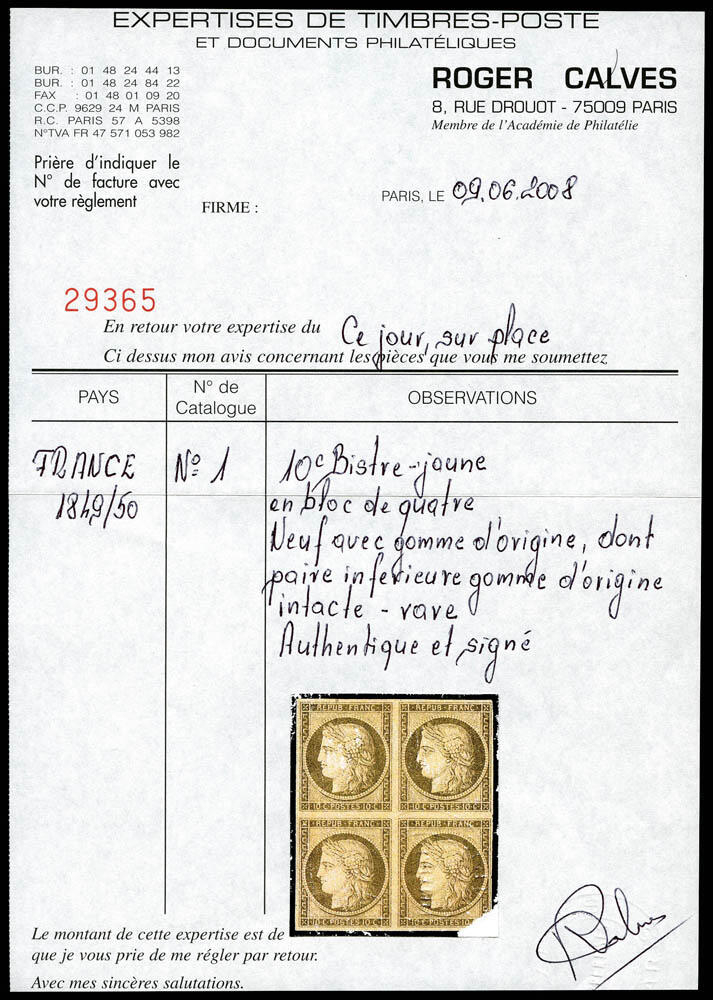 EXPERTISES DE TIMBRES-POSTE
ET DOCUMENTS PHILATÉLIQUES
BUR. : 01 48 24 44 13
BUR. : 01 48 24 84 22
FAX : 01 48 01 09 20
C.C.P. 9629 24 M PARIS
R.C. PARIS 57 A 5398
N°TVA FR 47 571 053 982
ROGER CALVES
8, RUE DROUOT - 75009 PARIS
Membre de l'Académie de Philatélie
Prière d'indiquer le
N° de facture avec
votre règlement
FIRME :
PARIS, LE 09.06.2008
29365
En retour votre expertise du Ce jour, sur place
Ci dessus mon avis concernant les pièces que vous me soumettez
PAYS
N° de
Catalogue
OBSERVATIONS
FRANCE
1849/50
N° 1
10c Bistre-jaune
en bloc de quatre
Neuf avec gomme d'origine, dont
paire inferieure gomme d'origine
intacte - rare
Authentique et signé
REPUB FRANC REPUB FRANC
10 C POSTES 10 C 10 C POSTES 10 C
REPUB FRANC REPUB FRANC
10 C POSTES 10 C 10 C POSTES
Le montant de cette expertise est de
que je vous prie de me régler par retour.
Avec mes sincères salutations.
Calves